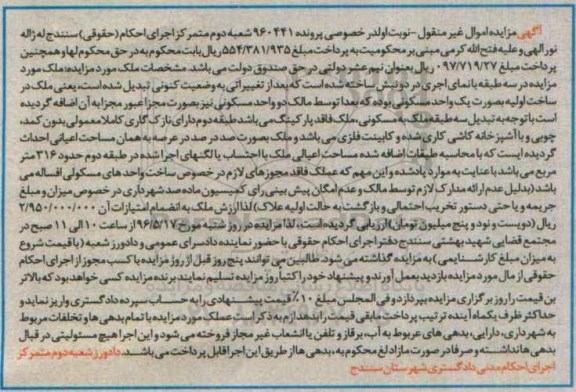 آگهی مزایده اموال غیر منقول -نوبت اول در خصوص پرونده ۹۶۰۴۴۱ شعبه دوم متمرکز اجرای احکام (حقوقی) سنندج له ژاله
نور الهی و علیه فتح الله کرمی مبنی بر محکومیت به پرداخت مبلغ ۵۵۴/۳۸۱/۹۳۵ ریال بابت محکوم به در حق محکوم لها و همچنین
پرداخت مبلغ ۰۹۷/۷۱۹/۲۷ ریال بعنوان نیم عشر دولتی در حق صندوق دولت می باشد. مشخصات ملک مورد مزایده: ملک مورد
مزایده در سه طبقه با نمای اجری در دو نبش ساخته شده است که بعد از تغییراتی به وضعیت کنونی تبدیل شده است، یعنی ملک در
ساخت اولیه بصورت یک واحد مسکونی بوده که بعدا توسط مالک دو واحد مسکونی نیز بصورت مجزا عبور مجزا به آن اضافه گردیده
است با توجه به تبدیل سه طبقه ملک به مسکونی، ملک فاقد پارکینگ می باشد طبقه دوم دارای نازک کاری کاملا معمولی بدون کمد،
چوبی و با آشپزخانه کاشی کاری شده و کابینت فلزی می باشد و ملک بصورت صد در صد در عرصه به همان مساحت اعیانی احداث
گردیده ایست که با محاسبه طبقات اضافه شده مساحت اعیالی ملک با احتساب بالگنهای اجرا شده در طبقه دوم حدود ۳۱۶ متر
مربع می باشد با عنایت به موارد یادشده و این مهم که عملک فاقد مجوزهای لازم در خصوص ساخت واحد های مسکولی اقساله می
باشد (بدلیل عدم ارائه مدارک لازم توسط مالک و عدم امکان پیش بینی رای کمیسیون ماده صد شهرداری در خصوص میزان و مبلغ
جریمه و یا حتی دستور تخریب احتمالی و بازگشت به حالت اولیه علاک) لذا ارزش ملک به انضمام امتیازات آن ۲/۹۵۰/۰۰۰/۰۰۰
ریال (دویست و نود و پنج میلیون تومان) ارزیابی گردیده است، لذا مزایده در روز شنبه مورخ ۹۶/۵/۱۷ از ساعت ۱۰ الی ۱۱ صبح در
مجتمع قضایی شهید بهشتی سنندج دفتر اجرای احکام حقوقی با حضور نماینده دادسرای عمومی و دادورز شعبه (با قیمت شروع
به میزان مبلغ کارشناسایی) به مزایده گذاشته می شود. طالبین می توانند پنج روز قبل از روز مزایده با کسب مجوز از اجرای احکام
حقوقی از مال مورد مزایده بازدید بعمل آورند و پیشنهاد خود را کتبا روز مزایده تسلیم نمایند برنده مزایده کسی خواهد بود که بالاتر
ین قیمت را روز برگزاری مزایده بپردازد و فی المجلس مبلغ ۱۰٪ قیمت پیشنهادی را به حساب سپرده دادگستری واریز نماید و
حداکثر ظرف یکماه آینده ترتیب پرداخت مابقی قیمت را بدهد لازم به ذکر است عملک مورد مزایده با تمام بدهی ها و تخلفات مربوط
به شهرداری، دارایی، بدهی های مربوط به آب، برق، گاز و تلفن یا انشعاب غیر مجاز فروخته می شود و این اجرا هیچ مسئولیتی در قبال
بدهی ها نداشته و صرفا در صورت مازاد لغ محکوم به، بدهی ها از طریق این اجرا قابل پرداخت می باشد. دادورز شعبه دوم متمرکز
اجرای احکام مدنی دادگستری شهرستان سنندج